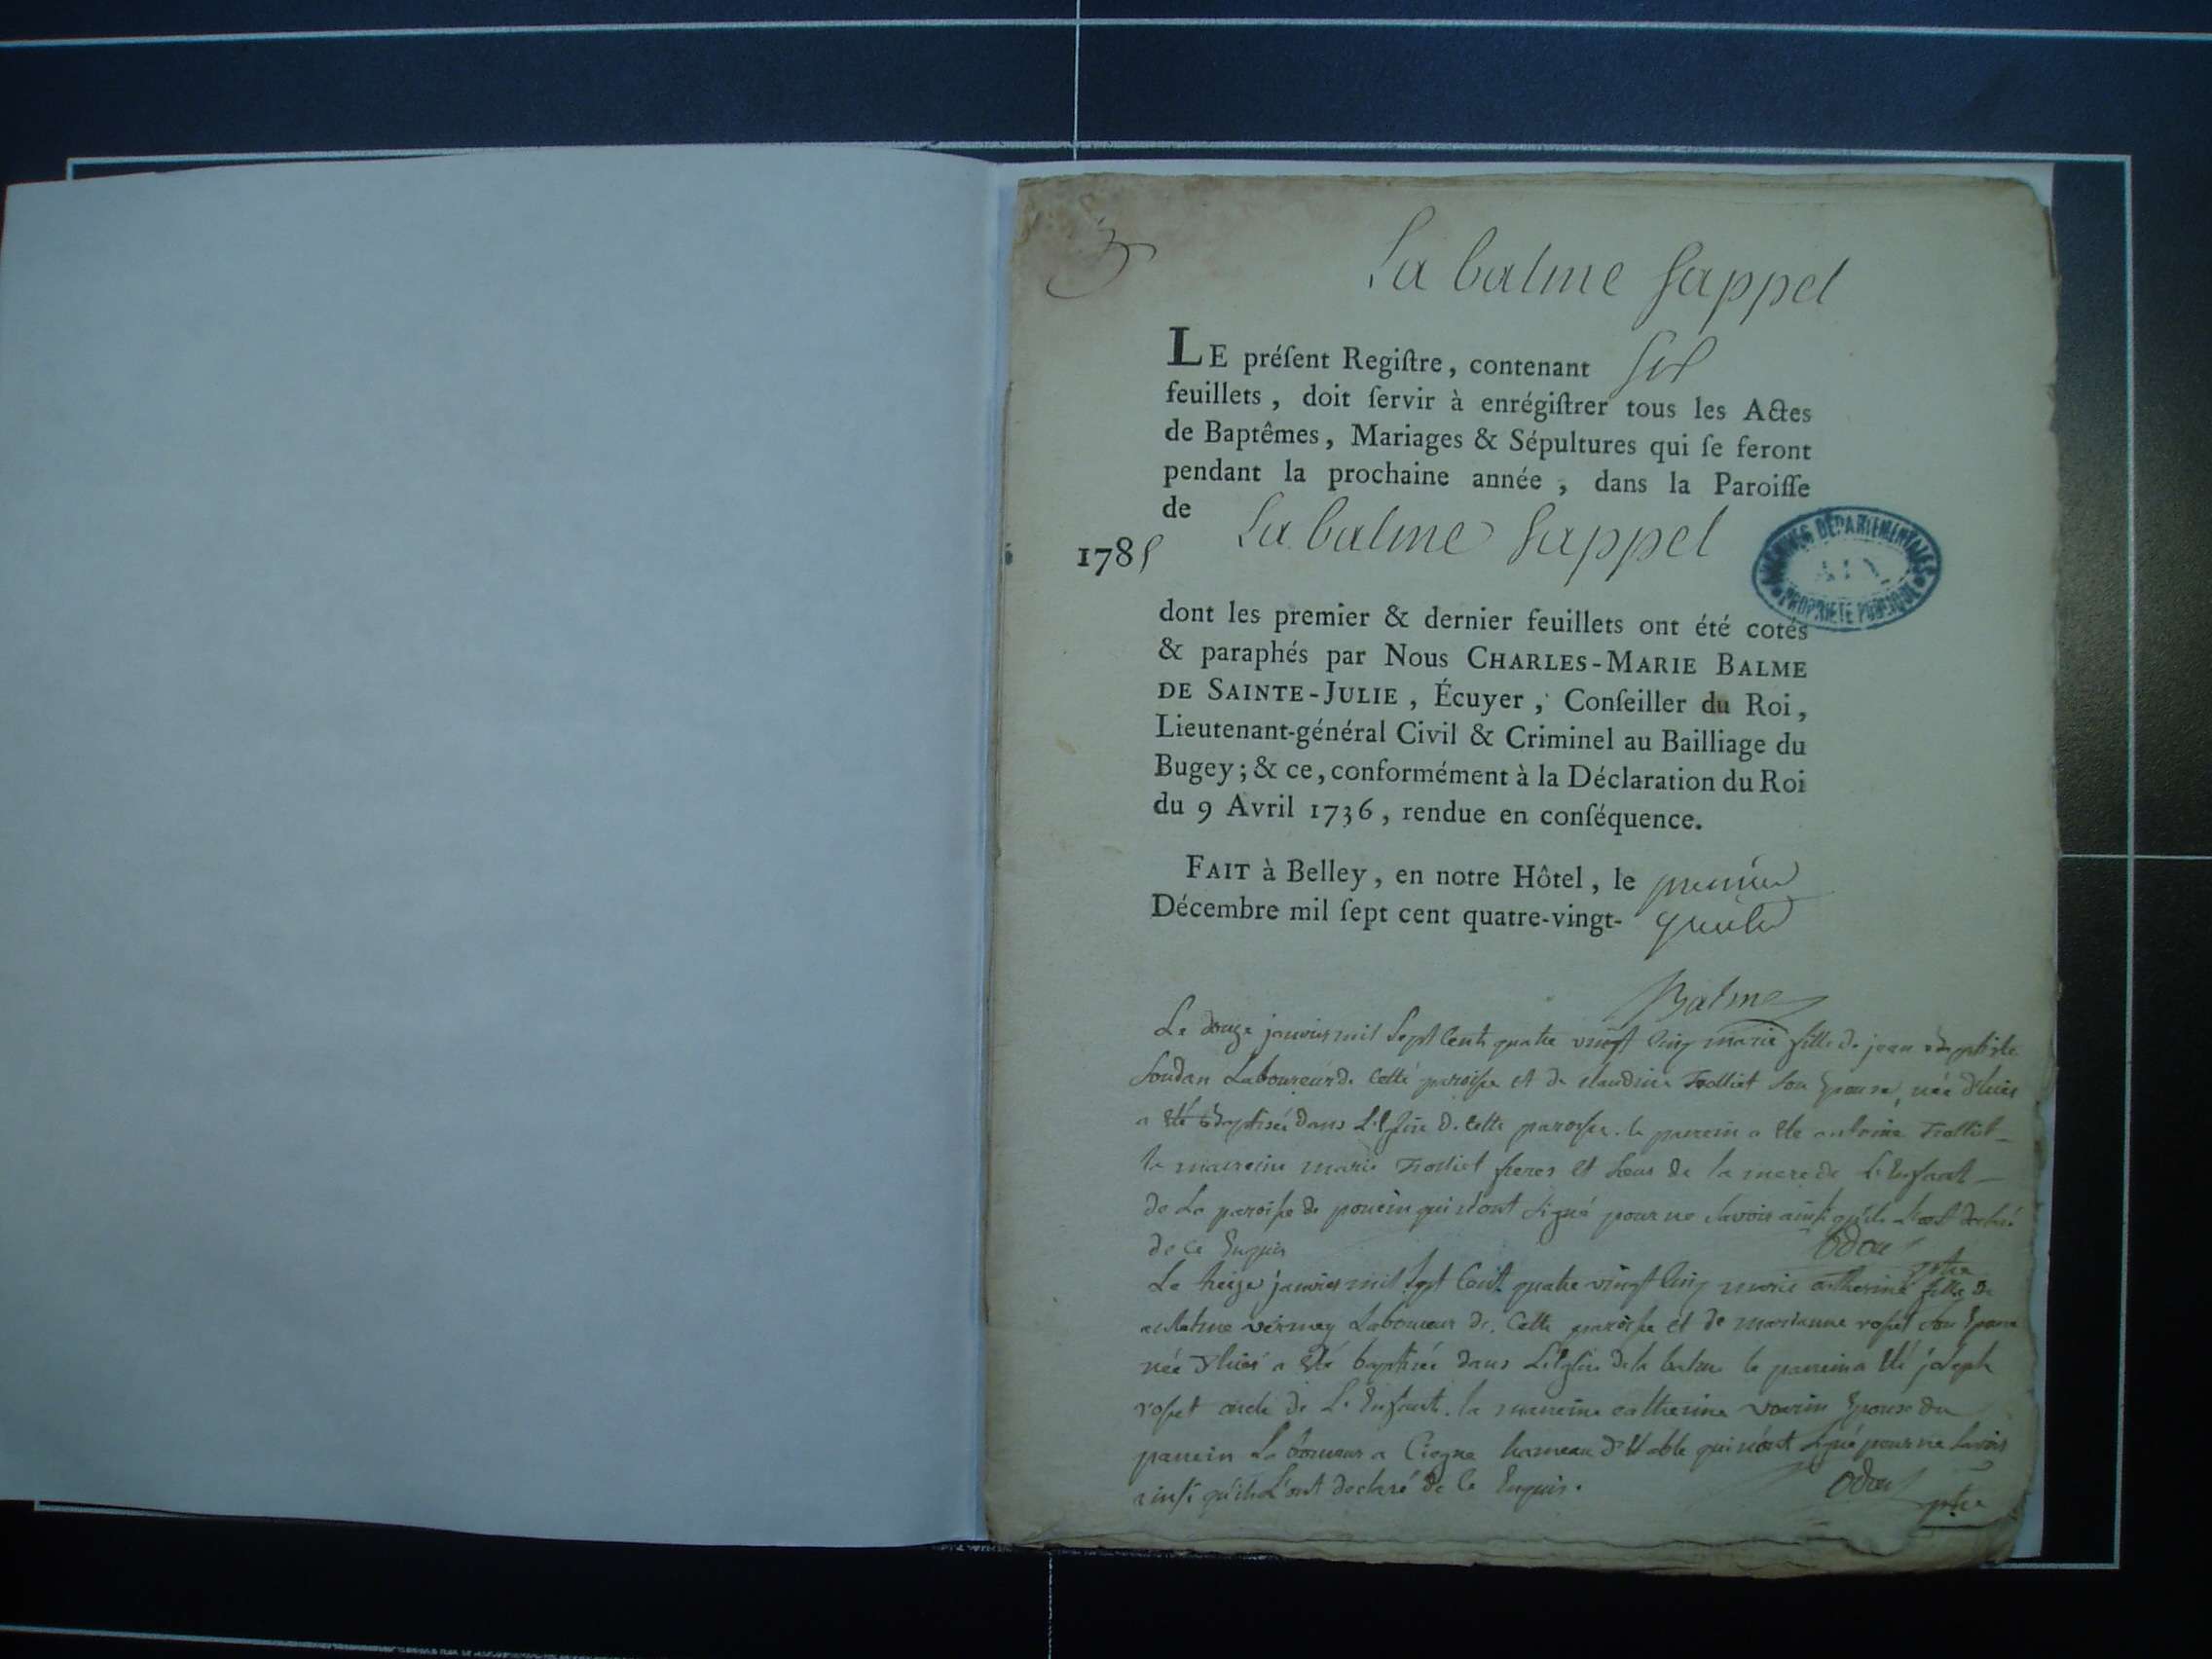 La balme sappel
LE préſent Regiſtre, contenant six
feuillets, doit ſervir à enrégiſtrer tous les Actes
de Baptêmes, Mariages & Sépultures qui ſe feront
pendant la prochaine année, dans la Paroiſſe
de La balme sappel
1785
ARCHIVES DÉPARTEMENTALES
AIN
PROPRIÉTÉ PUBLIQUE
dont les premier & dernier feuillets ont été cotés
& paraphés par Nous CHARLES-MARIE BALME
DE SAINTE-JULIE, Écuyer, Conſeiller du Roi,
Lieutenant-général Civil & Criminel au Bailliage du
Bugey; & ce, conformément à la Déclaration du Roi
du 9 Avril 1736, rendue en conſéquence.
FAIT à Belley, en notre Hôtel, le premier
Décembre mil ſept cent quatre-vingt- quatre
Balme
Le douze janvier mil sept cent quatre vingt cinq marie fille de jean baptiste
soudan Laboureur de cette paroisse et de claudine Trolliet son Epouse, née d'hier
a été baptisée dans L'Eglise de cette paroisse. le parrein a été antoine Trolliet
la marreine marie Trolliet freres et soeur de la mere de L'Enfant
de La paroisse de poncin qui n'ont signé pour ne savoir ainsi qu'ils L'ont declaré
de ce Enquis
Odou ptre
Le treize janvier mil sept cent quatre vingt cinq marie catherine fille de
anthelme vermey Laboureur de cette paroisse et de marianne rosset son Epouse
née d'hier a été baptisée dans L'Eglise de la balme le parrein a été joseph
rosset oncle de L'Enfant. la marreine catherine Epouse du
parrein Laboureur a hameau d'Etable qui n'ont signé pour ne savoir
ainsi qu'ils L'ont declaré de ce Enquis.
Odou ptre